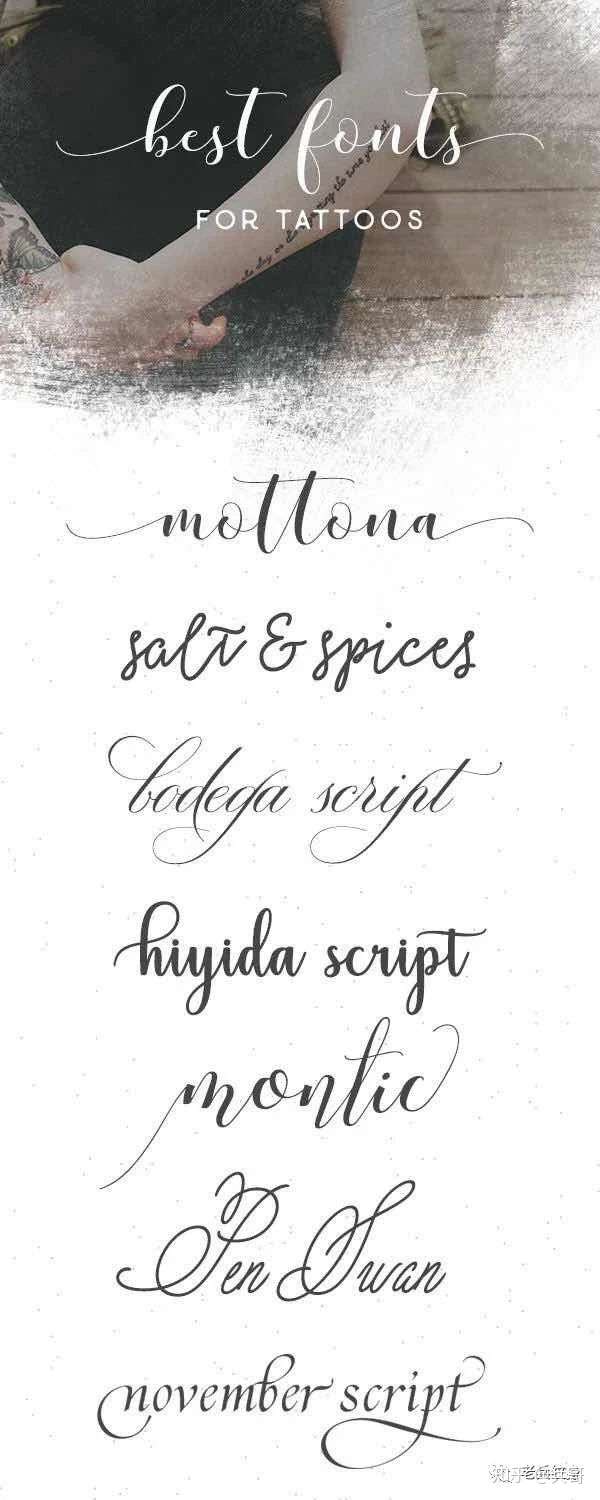 best fonts
FOR TATTOOS
mottona
salt & spices
bodega script
hiyida script
montic
Pen Swan
november script
知乎